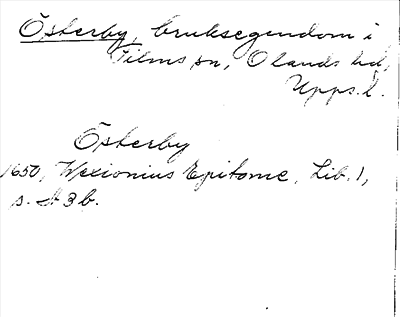 Österby, bruksegendom i
Films sn, Olands hd,
Upps. l.
Österby
1650, Wexionius Epitome, Lib. 1,
s. A 3 b.